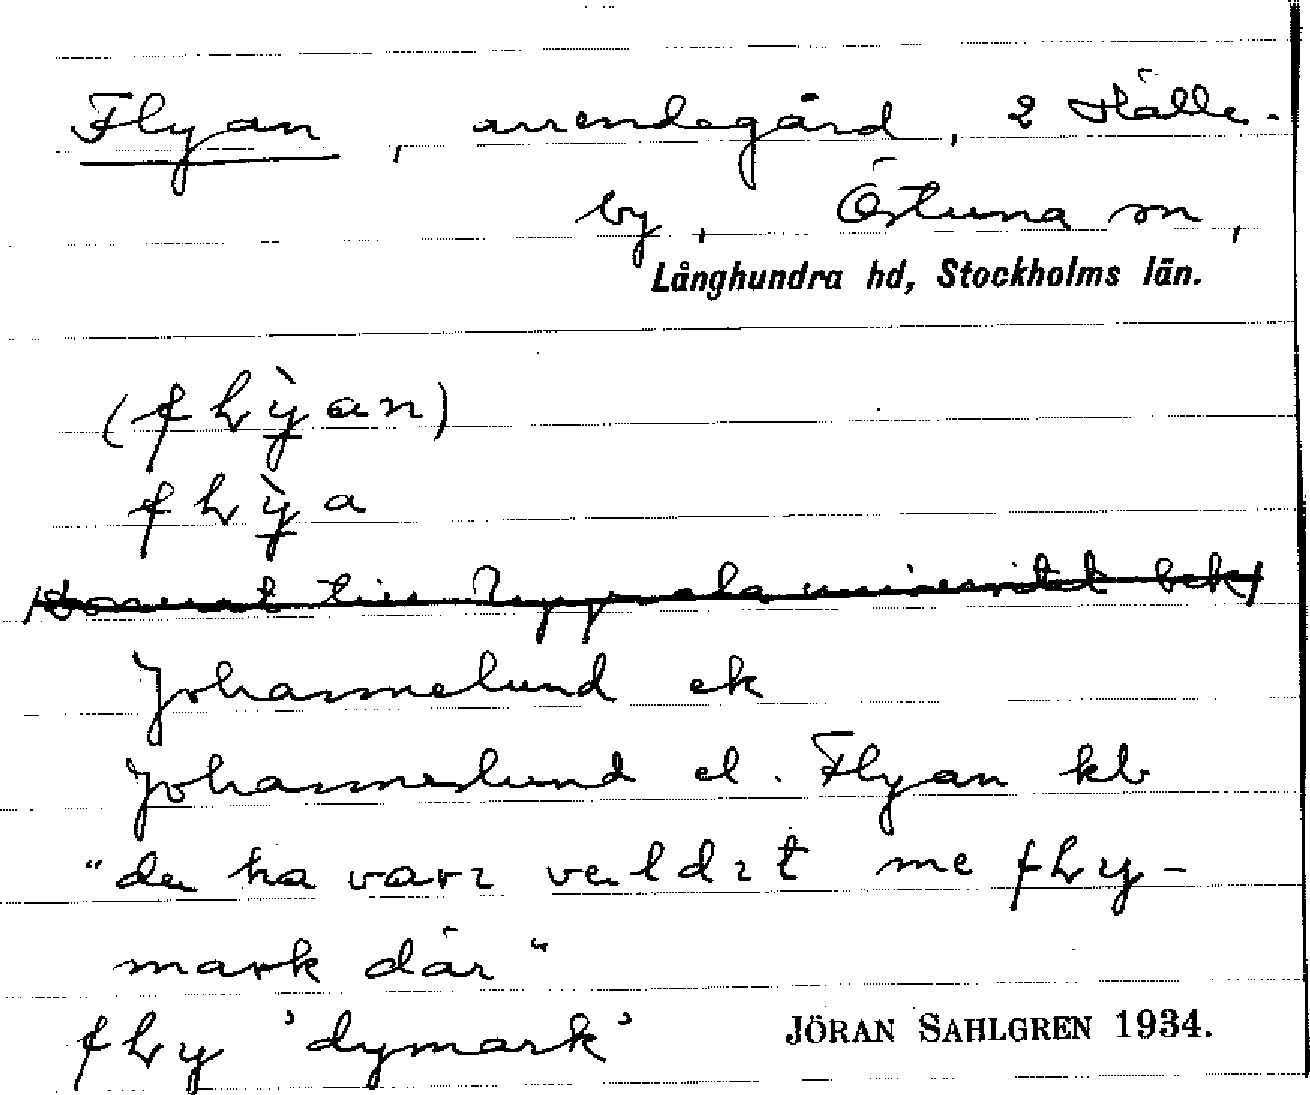 Flyan, arrendegård, 2 Hälle-
by, Östuna sn,
Långhundra hd, Stockholms län.
(fLỳan)
fLỳa
till Uppsala universitet
Johannelund ek
Johanneslund el. Flyan kb
"de ha varɩ veldɩt me fLy-
mark där"
fLy 'dymark'
JÖRAN SAHLGREN 1934.